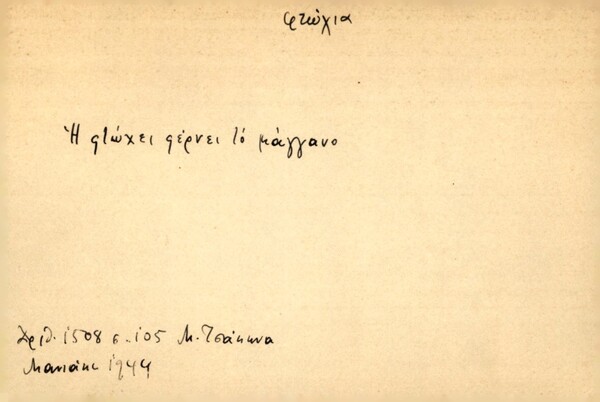 φτώχια
Ἡ φτώχει φέρνει τό μάγγανο
Ἀριθ. 1508 σ. 105 Μ. Τσάκωνα
Μανιάκι 1944